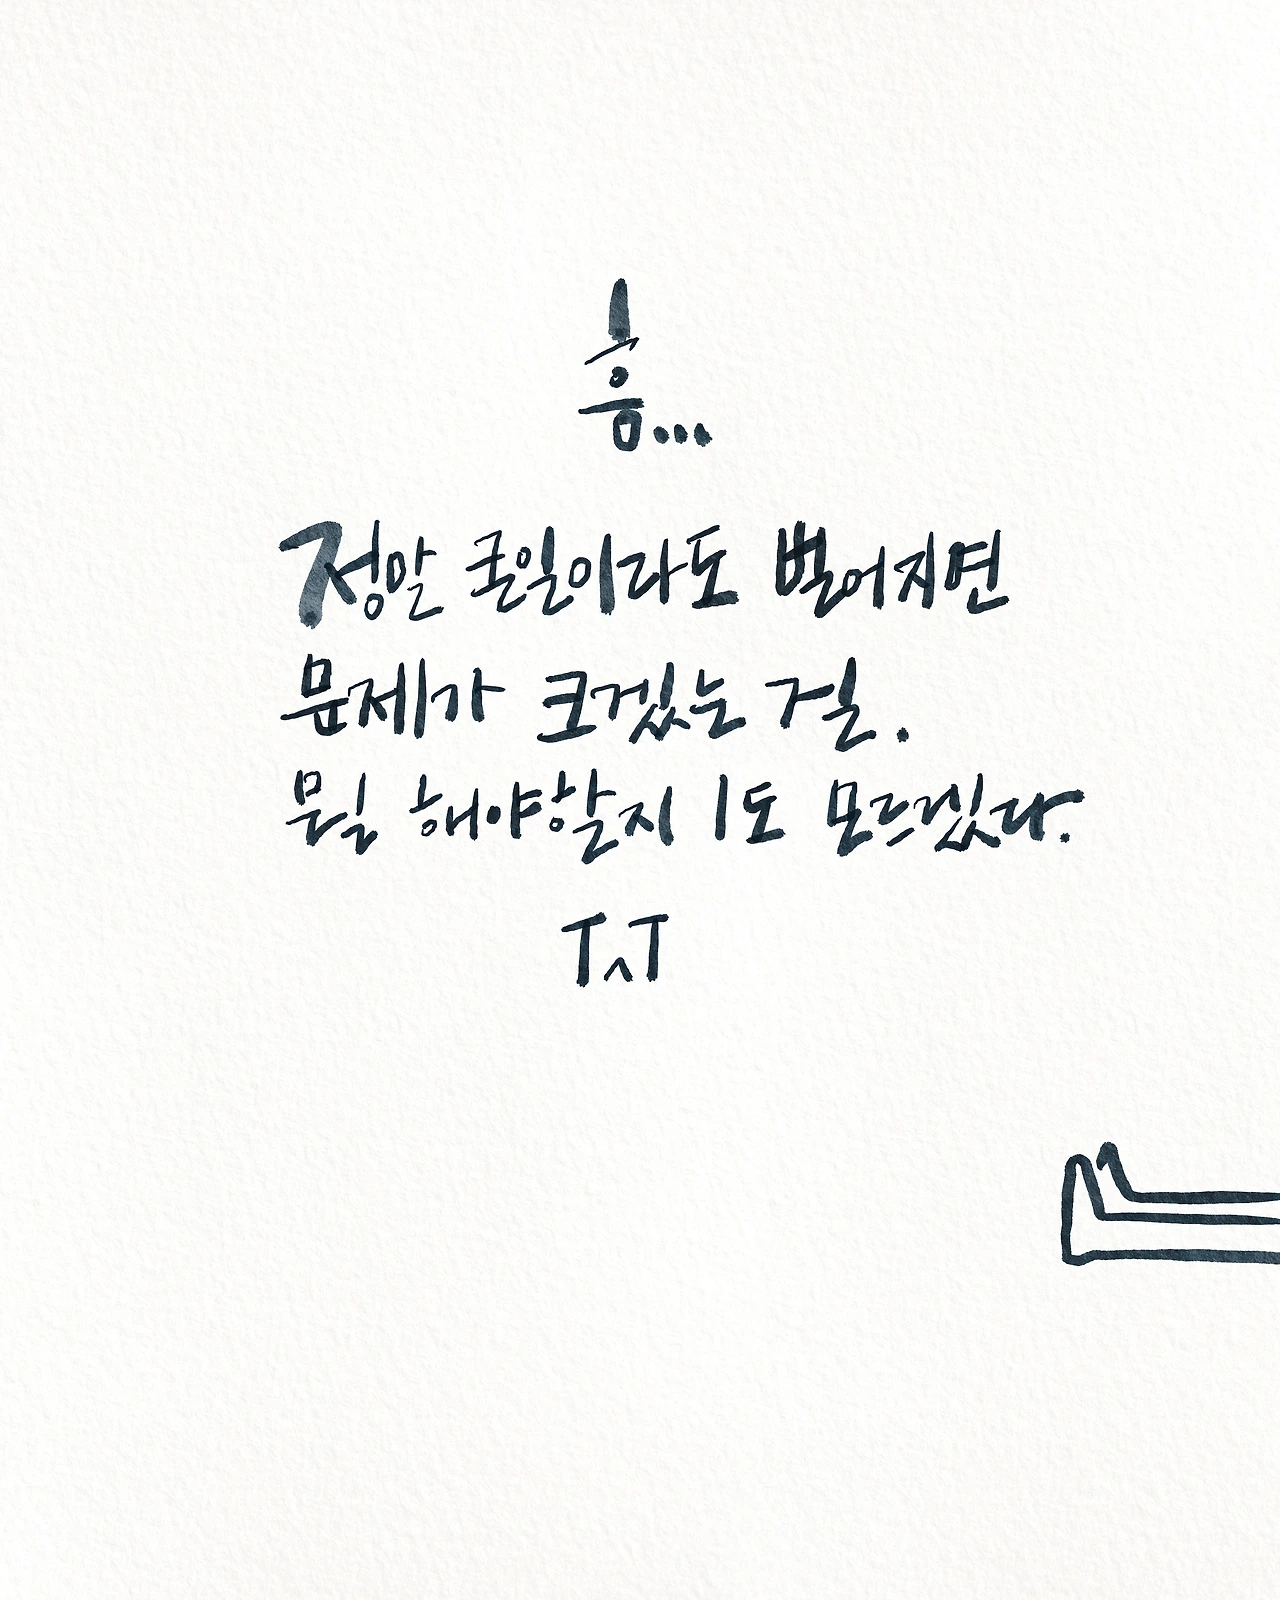 흠...
정말 큰일이라도 벌어지면
문제가 크겠는 걸.
뭘 해야할지 1도 모르겠다.
TㅅT